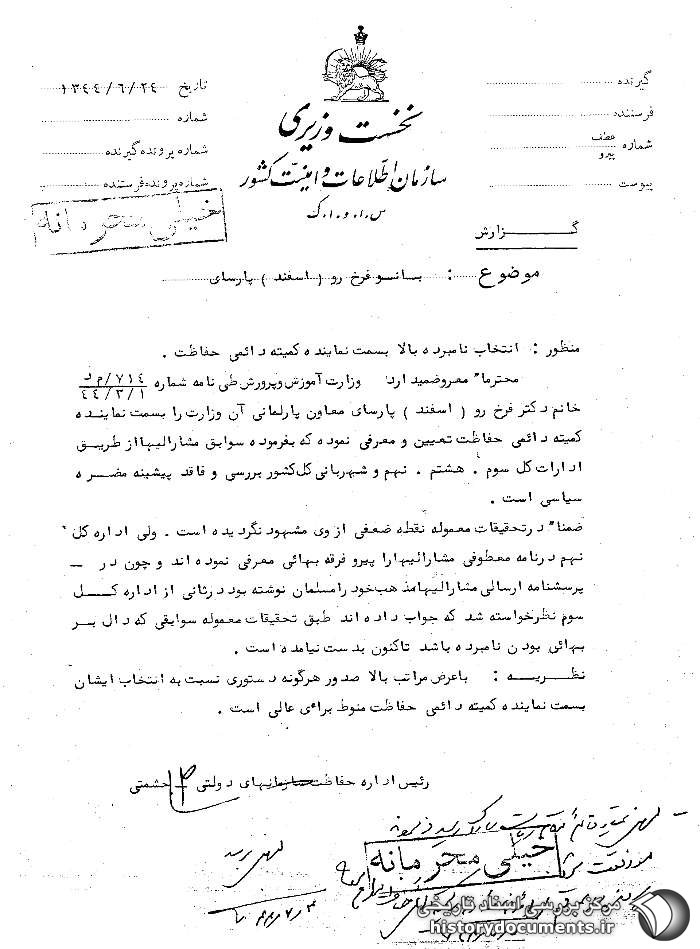 گیرنده
فرستنده
شماره عطف پیرو
پیوست
نخست وزیری
سازمان اطلاعات و امنیت کشور
س.ا.و.ا.ک
تاریخ ۱۳۴۴/۶/۲۴
شماره
شماره پرونده گیرنده
شماره پرونده فرستنده
خیلی محرمانه
گزارش
موضوع : بانو فرخ رو ( اسفند ) پارسای
منظور : انتخاب نامبرده بالا بسمت نماینده کمیته دائمی حفاظت .
محترما" معروضمیدارد وزارت آموزش وپرورش طی نامه شماره ۷۱۴/م د ۴۴/۳/۱
خانم دکتر فرخ رو ( اسفند ) پارسای معاون پارلمانی آن وزارت را بسمت نماینده
کمیته دائمی حفاظت تعیین و معرفی نموده که بفرموده سوابق مشارالیها از طریق
ادارات کل سوم . هشتم . نهم و شهربانی کل کشور بررسی و فاقد پیشینه مضره
سیاسی است .
ضمنا" در تحقیقات معموله نقطه ضعفی از وی مشهود نگردیده است . ولی اداره کل
نهم در نامه معطوفی مشارالیها را پیرو فرقه بهائی معرفی نموده اند و چون در
پرسشنامه ارسالی مشارالیها مذهب خود را مسلمان نوشته بود در ثانی از اداره کل
سوم نظرخواسته شد که جواب داده اند طبق تحقیقات معموله سوابقی که دال بر
بهائی بودن نامبرده باشد تاکنون بدست نیامده است .
نظریه : باعرض مراتب بالا صدور هرگونه دستوری نسبت به انتخاب ایشان
بسمت نماینده کمیته دائمی حفاظت منوط برای عالی است .
رئیس اداره حفاظت سازمانهای دولتی حشمتی
خیلی محرمانه
مرکز بررسی اسناد تاریخی
historydocuments.ir